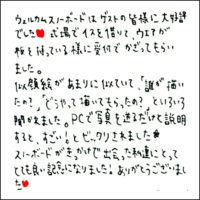 ウェルカムスノーボードはゲストの皆様に大好評
でした♥ 式場でイスを借りて、ウエアが
板を持っている様に受付でかざってもらい
ました。
似顔絵があまりに似ていて、「誰が描い
たの?」「どうやって描いてもらったの?」といろいろ
聞かれました。PCで写真を送るだけと説明
すると、すごい!とビックリされました★
スノーボードがきっかけで出会った私達にとって
とても良い記念になりました。ありがとうございまし
た♥